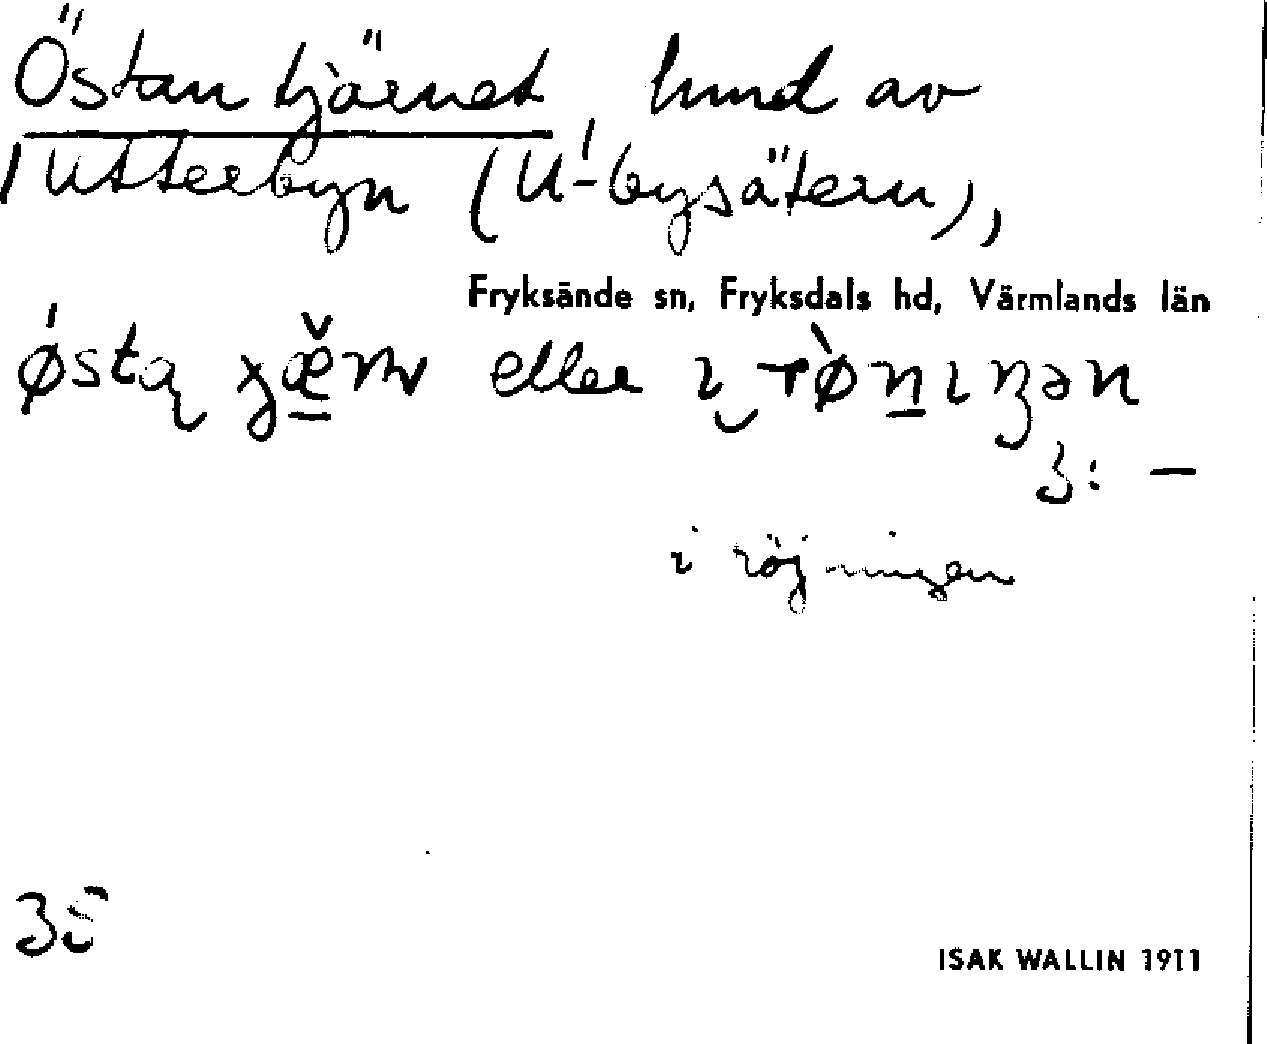 Östan tjärnet, hmd av
Utterbyn (U-bysätern),
Fryksände sn, Fryksdals hd, Värmlands län
eller
3: –
i röjningen
ISAK WALLIN 1911